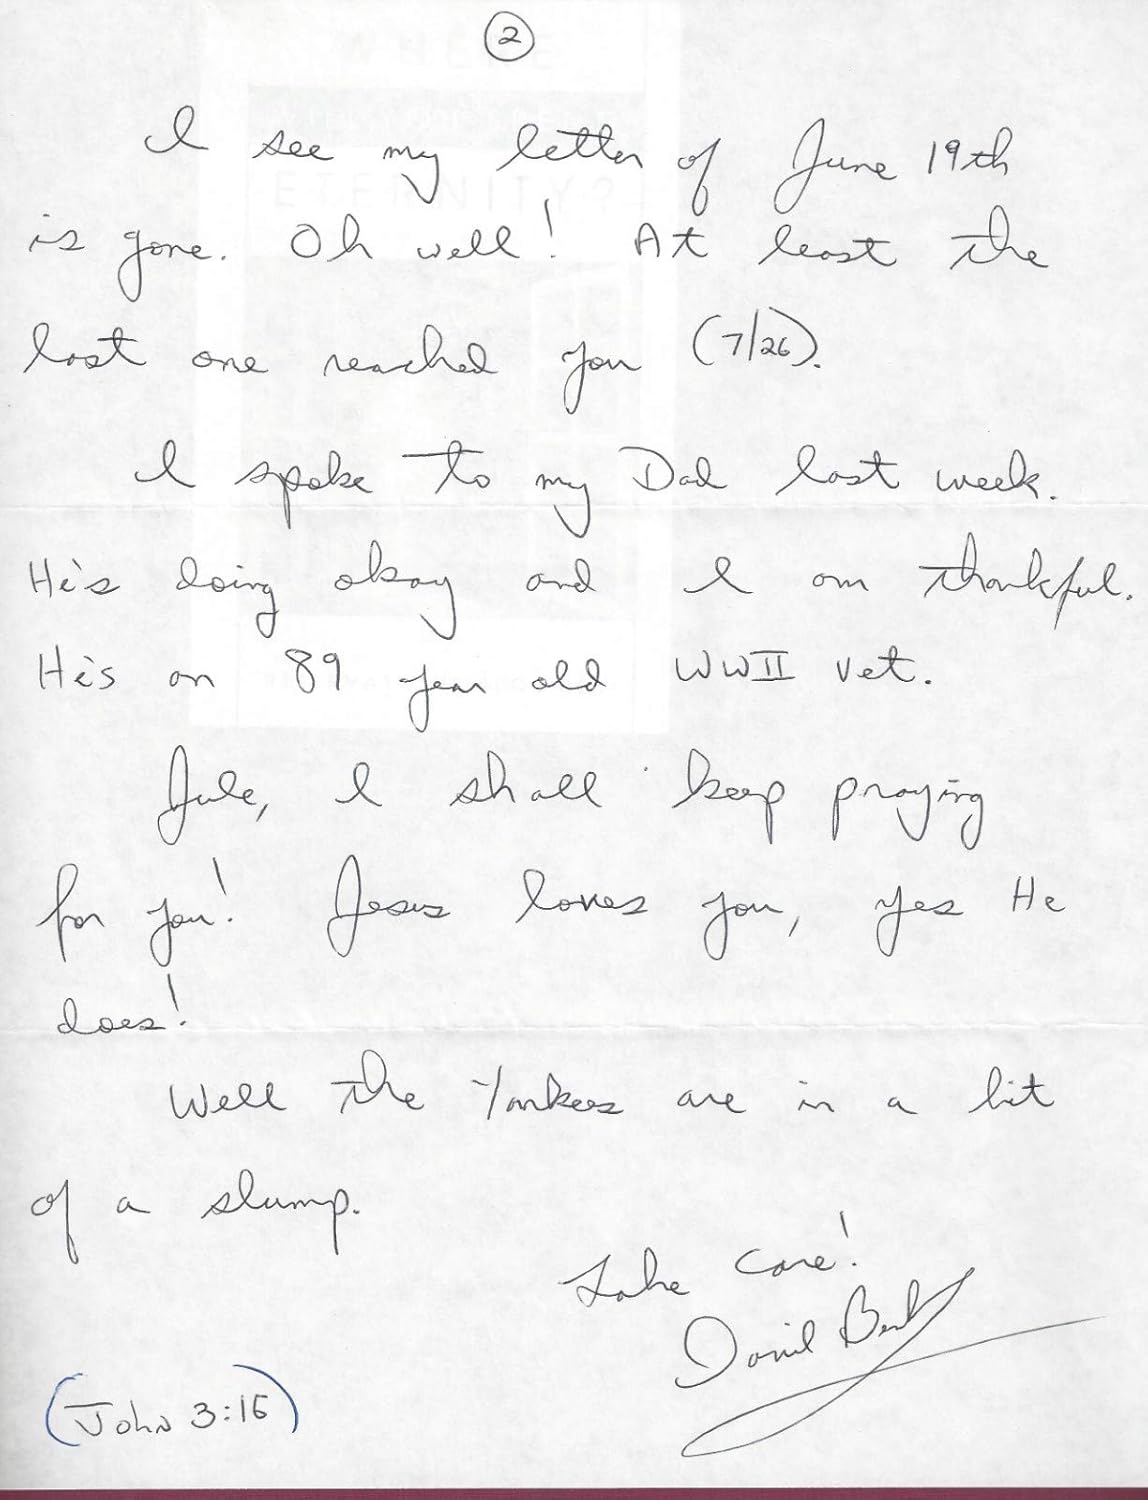 ②
I see my letter of June 19th
is gone. Oh well! At least the
last one reached you (7/26).
I spoke to my Dad last week.
He's doing okay and I am thankful.
He's an 89 year old WWII vet.
Jule, I shall keep praying
for you! Jesus loves you, yes He
does!
Well the Yankees are in a bit
of a slump.
Take Care!
David Berk
(John 3:16)
ETERNITY?